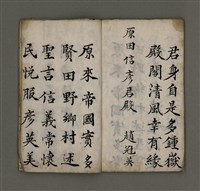 君身自是多鍾徽
殿閣清風幸有緣
原田信彥君殿 趙冠英
原來帝國實多
賢田野鄉村述
聖言信義常懷
民悅服彥英美